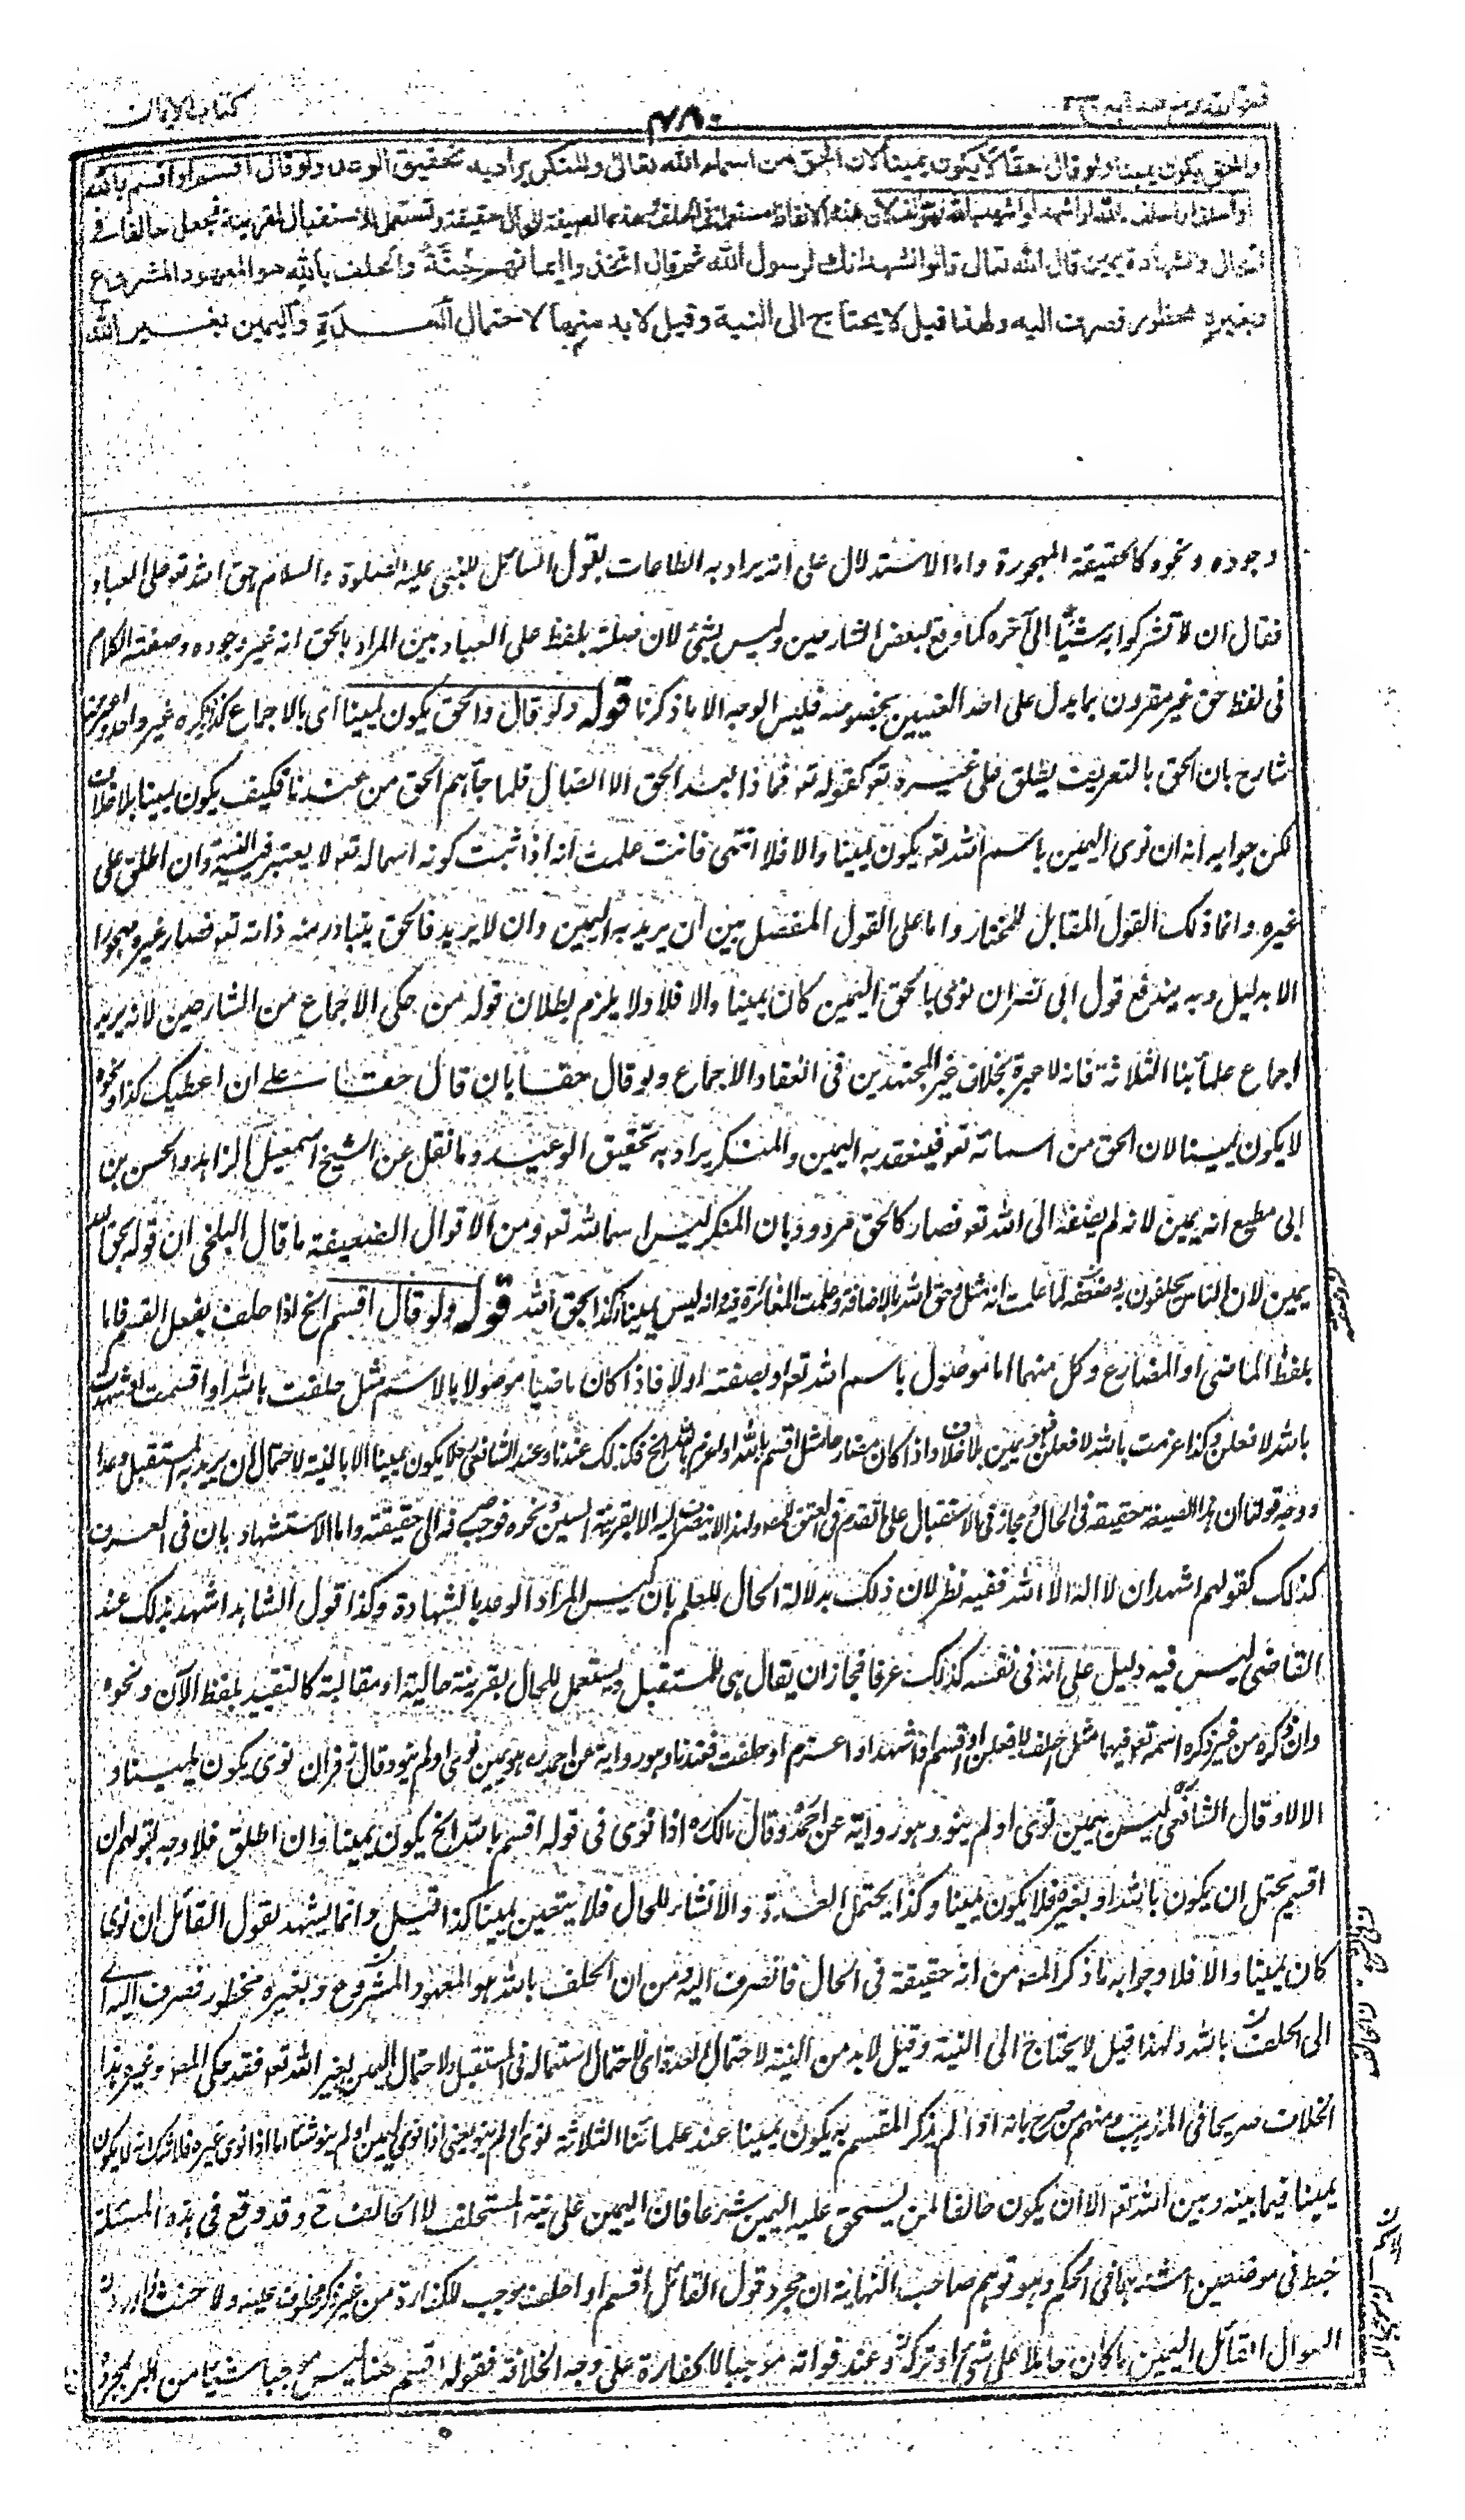 كتاب الايمان
٤٨٠
فتح القدير مع هدايه ج ٢
والحق يكون يمينا ولو قال حقا لا يكون يمينا لان الحق من اسماء الله تعالى والمنكر يراد به تحقيق الوعد ولو قال اقسم او اقسم بالله
او احلف او احلف بالله او اشهد او اشهد بالله فهو حالف لان هذه الالفاظ مستعملة في الحلف وهذه الصيغة للحال حقيقة وتستعمل للاستقبال لقرينة فجعل حالفا في
الحال والشهادة يمين قال الله تعالى قالوا نشهد انك لرسول الله ثم قال اتخذوا ايمانهم جنة والحلف بالله هو المعهود المشروع
وبغيره محظور فصرف اليه ولهذا قيل لا يحتاج الى النية وقيل لا بد منها لاحتمال العدة واليمين بغير الله
وجوده ونحوه كالحقيقة المهجورة واما الاستدلال على انه يراد به الطاعات بقول السائل للنبي عليه الصلوة والسلام حق الله تعو على العباد
فقال ان لا تشركوا به شيئا الى آخره كما وقع لبعض الشارحين وليس بشئ لان صلته بلفظ على العباد بين المراد بالحق انه غير وجوده وصفته الكلام
في لفظ حق غير مقرون بما يدل على احد المعنيين بخصوصه فليس الوجه الا ما ذكرنا قوله ولو قال والحق يكون يمينا اى بالاجماع كذا ذكره غير واحد
شارح بان الحق بالتعريف يطلق على غيره تعو كقوله تعو فماذا بعد الحق الا الضلال فلما جآءهم الحق من عندنا فكيف يكون يمينا بلا خلاف
لكن جوابه انه ان نوى اليمين باسم الله تعو يكون يمينا والا فلا انتهى فانت علمت انه اذا ثبت كونه اسما له تعو لا يعتبر فيه النية وان اطلق على
غيره وانما ذلك القول المقابل للمختار واما على القول المفصل بين ان يريد به اليمين وان لا يريد فالحق يتبادر منه ذاته تعو فصار غيره مهجورا
الا بدليل وبه يندفع قول ابى نصر ان نوى بالحق اليمين كان يمينا والا فلا ولا يلزم بطلان قوله من حكى الاجماع من الشارحين لانه يريد
اجماع علمائنا الثلاثة فانه لا عبرة بخلاف غير المجتهدين فى انعقاد الاجماع ولو قال حقا بان قال حقا على ان اعطيك كذا ونحوه
لا يكون يمينا لان الحق من اسمائه تعو فينعقد به اليمين والمنكر يراد به تحقيق الوعد وما نقل عن الشيخ اسمعيل الزاهد والحسن بن
ابى مطيع انه يمين لانه لم يضفه الى الله تعو فصار كالحق مردود بان المنكر ليس اسما لله تعو ومن الاقوال الضعيفة ما قال البلخى ان قوله بحق الله
يمين لان الناس يحلفون به وضعفه لما علمت انه مثل وحق الله بالاضافة وعلمت المغائرة فيه وانه ليس يمينا فكذا بحق الله قوله ولو قال اقسم الخ اذا حلف بفعل القسم فاما
بلفظ الماضى او المضارع وكل منهما اما موصول باسم الله تعو او بصفته اولا فاذا كان ماضيا موصولا بالاسم مثل حلفت بالله او اقسمت او شهدت
بالله لافعلن وكذا عزمت بالله لافعلن فهو يمين بلا خلاف واذا كان مضارعا مثل اقسم بالله او اعزم بالله الخ فكذلك عندنا وعند الشافعى رح لا يكون يمينا الا بالنية لاحتمال ان يريد به المستقبل وعدا
ووجه قولنا ان هذا الصيغة حقيقة فى الحال ومجاز فى الاستقبال على ما تقدم فى العتق ولهذا لا ينصرف اليه الا بقرينة السين ونحوه فوجب صرفه الى حقيقته واما الاستشهاد بان فى العرف
كذلك كقولهم اشهد ان لا اله الا الله ففيه نظر لان ذلك بدلالة الحال للعلم بان ليس المراد الوعد بالشهادة وكذا قول الشاهد اشهد بذلك عند
القاضى ليس فيه دليل على انه فى نفسه كذلك عرفا فجاز ان يقال هى للمستقبل ويستعمل للحال بقرينة حالية او مقالية كالتقييد بلفظ الآن ونحوه
وان ذكره من غير ذكره اسمه تعو فيهما مثل احلف لافعلن او اقسم او اشهد او اعزم او حلفت فعندنا وهو رواية عن احمد رح هو يمين نوى او لم ينو وقال زفر ان نوى يكون يمينا و
الا لا وقال الشافعى ره ليس بيمين نوى او لم ينو وهو رواية عن احمد وقال مالك ره اذا نوى فى قوله اقسم بالله الخ يكون يمينا وان اطلق فلا وجه لقولهم ان
اقسم يحتمل ان يكون بالله او بغيره فلا يكون يمينا وكذا يحتمل العدة والانشاء للحال فلا يتعين يمينا كذا قيل وانما يشهد لقول القائل ان نوى
كان يمينا والا فلا وجوابه ما ذكر المصـ من انه حقيقة فى الحال فانصرف اليه ومن ان الحلف بالله هو المعهود المشروع وبغيره محظور فصرف اليه اى
الى الحلف بالله ولهذا قيل لا يحتاج الى النية وقيل لا بد من النية لاحتمال العدة اى لاحتمال استعماله فى المستقبل ولاحتمال اليمين بغير الله تعو فقد حكى المصـ وغيره هذا
الخلاف صريحا فى المذهب ومنهم من صرح بانه اذا لم يذكر المقسم به يكون يمينا عند علمائنا الثلاثة نوى او لم ينو يعنى اذا نوى اليمين او لم ينو شيئا اما اذا نوى غيره فلا شك انه لا يكون
يمينا فيما بينه وبين الله تعو الا ان يكون حالفا لمن يستحق عليه اليمين شرعا فان اليمين على نية المستحلف لا الحالف ح وقد وقع فى هذه المسئلة
خبط فى موضعين اشتبها فى الحكم وهو توهم صاحب النهاية ان مجرد قول القائل اقسم او احلف يوجب الكفارة من غير ذكر محلوف عليه ولا حنث
القائل اليمين ما كان حاملا على شئ او تركه وعند فواته موجبا للكفارة على وجه الخلافة فقوله اقسم هنا ليس موجبا شيئا من البر